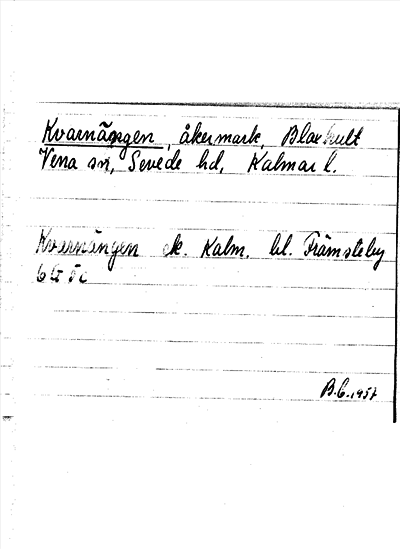 Kvarnängen, åkermark, Bloxhult
Vena sn, Sevede hd, Kalmar l.
Kvarnängen ek. Kalm. bl. Främsteby
6G 5c
B.C. 1957